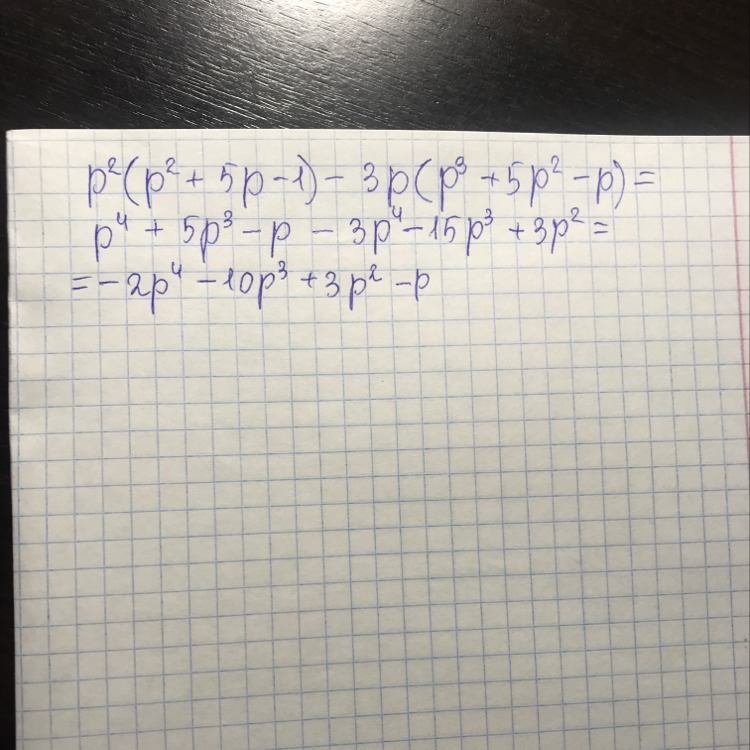 p²(p² + 5p - 1) - 3p(p³ + 5p² - p) =
p⁴ + 5p³ - p - 3p⁴ - 15p³ + 3p² =
= - 2p⁴ - 10p³ + 3p² - p